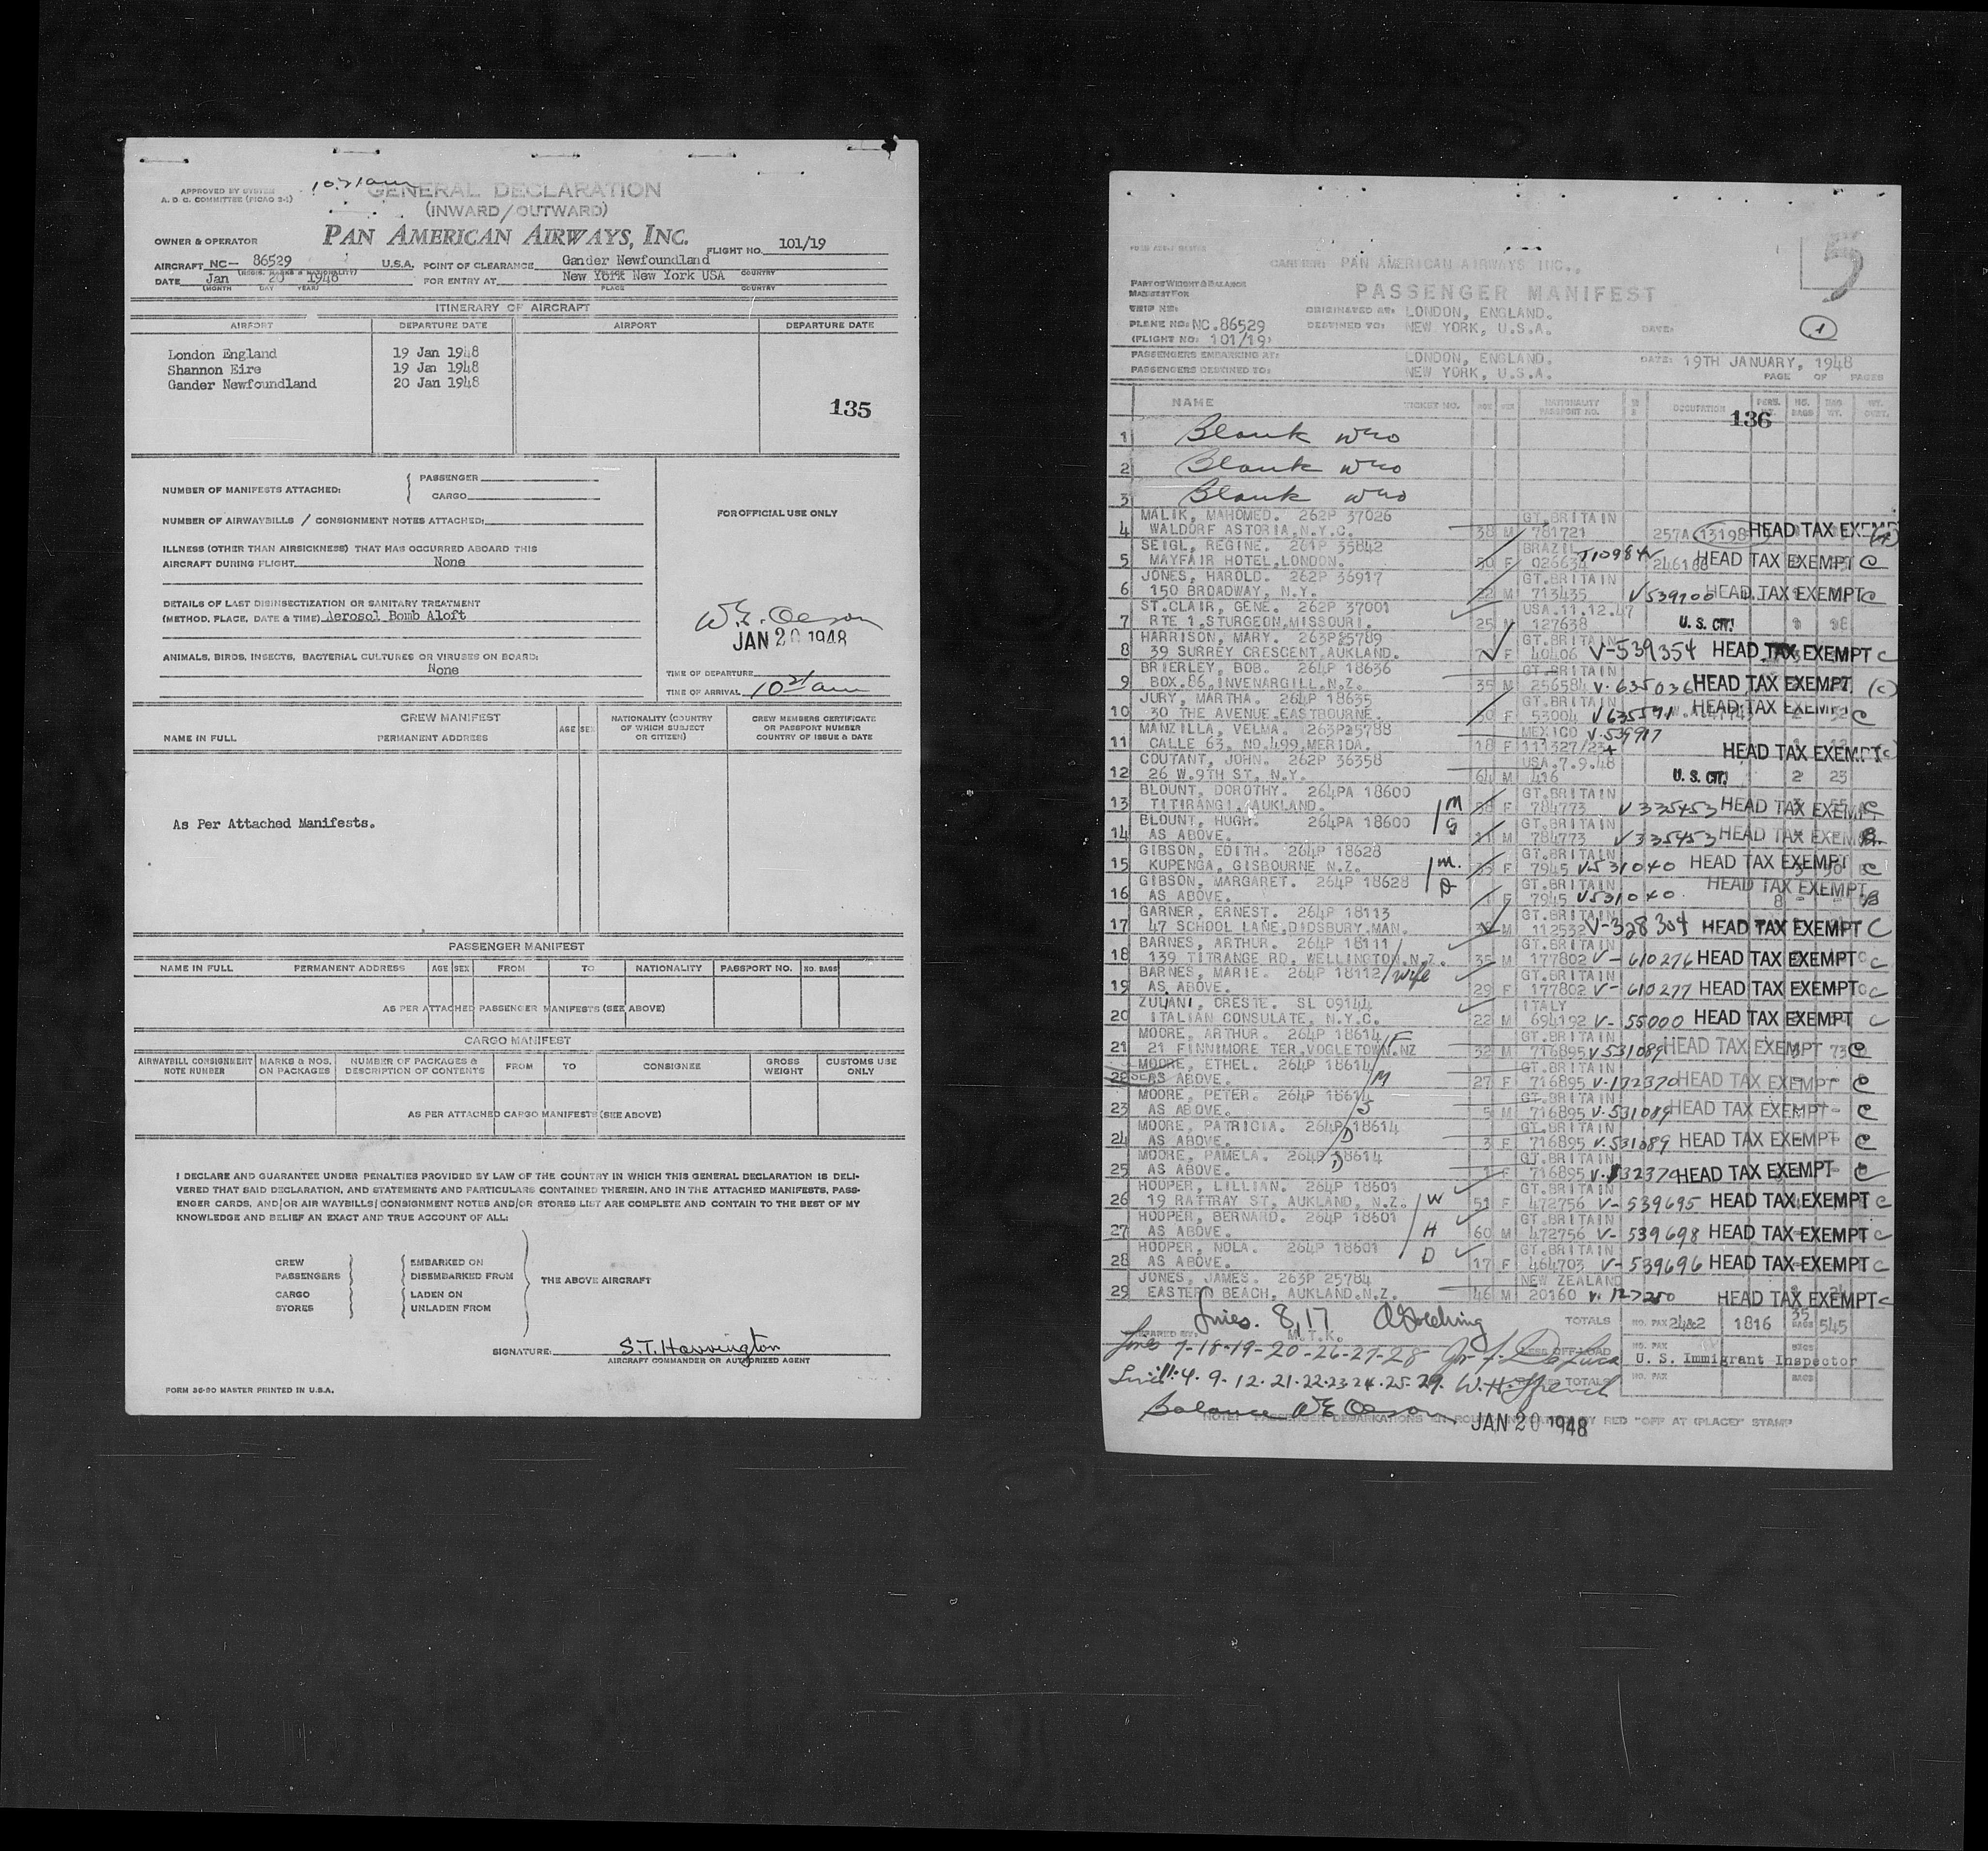 10:21 am
APPROVED BY SYSTEM
A. D C. COMMITTEE (PICAO 3-1)
GENERAL DECLARATION
(INWARD/OUTWARD)
OWNER & OPERATOR PAN AMERICAN AIRWAYS, INC. FLIGHT NO. 101/19
AIRCRAFT NC- 86529 U.S.A. POINT OF CLEARANCE Gander Newfoundland
(REGIS. MARKS & NATIONALITY) PLACE COUNTRY
DATE Jan 20 1948 FOR ENTRY AT New York New York USA
(MONTH DAY YEAR) PLACE COUNTRY
ITINERARY OF AIRCRAFT
AIRPORT DEPARTURE DATE AIRPORT DEPARTURE DATE
London England 19 Jan 1948
Shannon Eire 19 Jan 1948
Gander Newfoundland 20 Jan 1948
135
NUMBER OF MANIFESTS ATTACHED: PASSENGER
CARGO
NUMBER OF AIRWAYBILLS / CONSIGNMENT NOTES ATTACHED:
ILLNESS (OTHER THAN AIRSICKNESS) THAT HAS OCCURRED ABOARD THIS
AIRCRAFT DURING FLIGHT None
DETAILS OF LAST DISINSECTIZATION OR SANITARY TREATMENT
(METHOD, PLACE, DATE & TIME) Aerosol Bomb Aloft
ANIMALS, BIRDS, INSECTS, BACTERIAL CULTURES OR VIRUSES ON BOARD:
None
FOR OFFICIAL USE ONLY
W.E. Olson
JAN 20 1948
TIME OF DEPARTURE
TIME OF ARRIVAL 10 21 am
CREW MANIFEST
NAME IN FULL PERMANENT ADDRESS AGE SEX NATIONALITY (COUNTRY OF WHICH SUBJECT OR CITIZEN) CREW MEMBERS CERTIFICATE OR PASSPORT NUMBER COUNTRY OF ISSUE & DATE
As Per Attached Manifests.
PASSENGER MANIFEST
NAME IN FULL PERMANENT ADDRESS AGE SEX FROM TO NATIONALITY PASSPORT NO. NO. BAGS
AS PER ATTACHED PASSENGER MANIFESTS (SEE ABOVE)
CARGO MANIFEST
AIRWAYBILL CONSIGNMENT NOTE NUMBER MARKS & NOS. ON PACKAGES NUMBER OF PACKAGES & DESCRIPTION OF CONTENTS FROM TO CONSIGNEE GROSS WEIGHT CUSTOMS USE ONLY
AS PER ATTACHED CARGO MANIFESTS (SEE ABOVE)
I DECLARE AND GUARANTEE UNDER PENALTIES PROVIDED BY LAW OF THE COUNTRY IN WHICH THIS GENERAL DECLARATION IS DELI-
VERED THAT SAID DECLARATION, AND STATEMENTS AND PARTICULARS CONTAINED THEREIN, AND IN THE ATTACHED MANIFESTS, PASS-
ENGER CARDS, AND/OR AIR WAYBILLS/CONSIGNMENT NOTES AND/OR STORES LIST ARE COMPLETE AND CONTAIN TO THE BEST OF MY
KNOWLEDGE AND BELIEF AN EXACT AND TRUE ACCOUNT OF ALL:
CREW EMBARKED ON
PASSENGERS DISEMBARKED FROM THE ABOVE AIRCRAFT
CARGO LADEN ON
STORES UNLADEN FROM
SIGNATURE: S.T. Harrington
AIRCRAFT COMMANDER OR AUTHORIZED AGENT
FORM 36-90 MASTER PRINTED IN U.S.A.
5
CARRIER: PAN AMERICAN AIRWAYS INC.,
PART OF WEIGHT & BALANCE
MANIFEST FOR PASSENGER MANIFEST
SHIP NO: ORIGINATED AT: LONDON, ENGLAND.
PLANE NO: NC.86529 DESTINED TO: NEW YORK, U.S.A. DATE: 1
(FLIGHT NO: 101/19)
PASSENGERS EMBARKING AT: LONDON, ENGLAND. DATE: 19TH JANUARY, 1948
PASSENGERS DESTINED TO: NEW YORK, U.S.A. PAGE OF PAGES
NAME TICKET NO. AGE SEX NATIONALITY PASSPORT NO. OCCUPATION PERS. WT. NO. BAGS
136
1 Blank weo
2 Blank weo
3 Blank weo
MALIK, MAHOMED. 262P 37026 GT.BRITAIN
4 WALDORF ASTORIA,N.Y.C. 38 M 781721 257A 13198 HEAD TAX EXEMPT
SEIGL, REGINE. 261P 35842 BRAZIL
5 MAYFAIR HOTEL,LONDON. 50 F 026634 HEAD TAX EXEMPT C
JONES, HAROLD. 262P 36917 GT.BRITAIN
6 150 BROADWAY, N.Y. 22 M 713435 V539100 HEAD TAX EXEMPT C
ST.CLAIR, GENE. 262P 37001 USA.11.12.47
7 RTE 1,STURGEON,MISSOURI. 25 M 127638 U. S. CIT.
HARRISON, MARY. 263P25789 GT.BRITAIN
8 39 SURREY CRESCENT,AUKLAND. F 40406 V-539354 HEAD TAX EXEMPT C
BRIERLEY, BOB. 264P 18636 GT.BRITAIN
9 BOX.86,INVENARGILL.N.Z. 35 M 256584 V-635036 HEAD TAX EXEMPT (C)
JURY, MARTHA. 264P 18635 GT.BRITAIN
10 30 THE AVENUE,EASTBOURNE. 50 F 53004 V635591 HEAD TAX EXEMPT C
MANZILLA, VELMA. 263P25788 MEXICO V-539917
11 CALLE 63, NO.499,MERIDA. 18 F HEAD TAX EXEMPT (C)
COUTANT, JOHN. 262P 36358 USA.7.9.48
12 26 W.9TH ST, N.Y. 64 M 416 U. S. CIT. 2 23
BLOUNT, DOROTHY. 264PA 18600 M GT.BRITAIN
13 TITIRANGI,AUKLAND. 38 F 784773 V335453 HEAD TAX EXEMPT C
BLOUNT, HUGH. 264PA 18600 S GT.BRITAIN
14 AS ABOVE. 11 M 784773 V335453 HEAD TAX EXEMPT
GIBSON, EDITH. 264P 18628 M. GT.BRITAIN
15 KUPENGA, GISBOURNE N.Z. 35 F 7945 V531040 HEAD TAX EXEMPT C
GIBSON, MARGARET. 264P 18628 D GT.BRITAIN
16 AS ABOVE. F 7945 V531040 HEAD TAX EXEMPT
GARNER, ERNEST. 264P 18113 GT.BRITAIN
17 47 SCHOOL LANE,DIDSBURY,MAN. M 112532 V-328304 HEAD TAX EXEMPT C
BARNES, ARTHUR. 264P 18111 GT.BRITAIN
18 139 TITRANGE RD, WELLINGTON,N.Z. 35 M 177802 V-610276 HEAD TAX EXEMPT C
BARNES, MARIE. 264P 18112 wife GT.BRITAIN
19 AS ABOVE. 29 F 177802 V-610277 HEAD TAX EXEMPT C
ZULANI, CRESTE. SL 09144 ITALY
20 ITALIAN CONSULATE, N.Y.C. 22 M 694192 V-55000 HEAD TAX EXEMPT C
MOORE, ARTHUR. 264P 18614 F GT.BRITAIN
21 21 FINNIMORE TER,VOGLETOWN.NZ 32 M 716895 V-531089 HEAD TAX EXEMPT 73 C
MOORE, ETHEL. 264P 18614 M GT.BRITAIN
22 AS ABOVE. 27 F 716895 V-132370 HEAD TAX EXEMPT C
MOORE, PETER. 264P 18614 S GT.BRITAIN
23 AS ABOVE. 5 M 716895 V-531089 HEAD TAX EXEMPT C
MOORE, PATRICIA. 264P 18614 D GT.BRITAIN
24 AS ABOVE. 3 F 716895 V-531089 HEAD TAX EXEMPT C
MOORE, PAMELA. 264P 18614 D GT.BRITAIN
25 AS ABOVE. 1 F 716895 V-132370 HEAD TAX EXEMPT C
HOOPER, LILLIAN. 264P 18601 W GT.BRITAIN
26 19 RATTRAY ST, AUKLAND, N.Z. 51 F 472756 V-539695 HEAD TAX EXEMPT C
HOOPER, BERNARD. 264P 18601 H GT.BRITAIN
27 AS ABOVE. 60 M 472756 V-539698 HEAD TAX EXEMPT C
HOOPER, NOLA. 264P 18601 D GT.BRITAIN
28 AS ABOVE. 17 F 464703 V-539696 HEAD TAX EXEMPT C
JONES, JAMES. 263P 25784 NEW ZEALAND
29 EASTERN BEACH, AUKLAND.N.Z. 46 M 20160 V-127250 HEAD TAX EXEMPT C
Lines. 8, 17 TOTALS NO. PAX 24&2 1816 35 BAGS 545
PREPARED BY: M.T.K.
Lines 7-18-19-20-26-27-28 LESS OFF-LOAD NO. PAX BAGS
U. S. Immigrant Inspector
Lines 4-9-12-21-22-23-24-25-29. W.H. French TOTALS NO. PAX BAGS
Balance W E Olson
NOTE: PASSENGER DEBARKATIONS EN ROUTE INDICATED BY RED "OFF AT (PLACE)" STAMP
JAN 20 1948